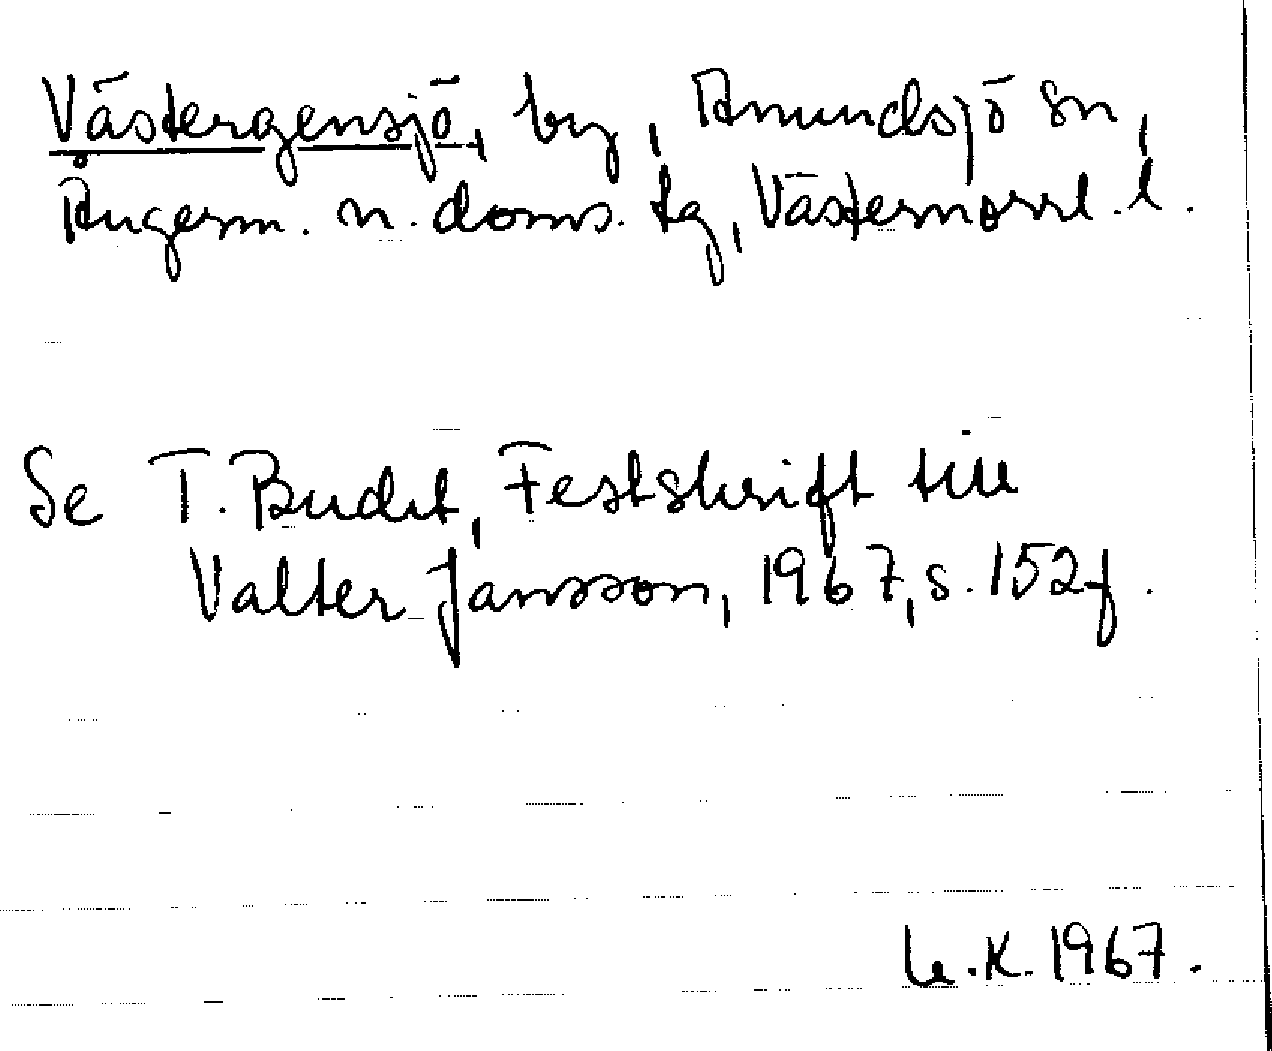 Västergensjö, by, Anundsjö sn,
Ångerm. n. doms. tg, Västernorrl. l.
Se T. Bucht, Festskrift till
Valter Jansson, 1967, s. 152f.
K. 1967.